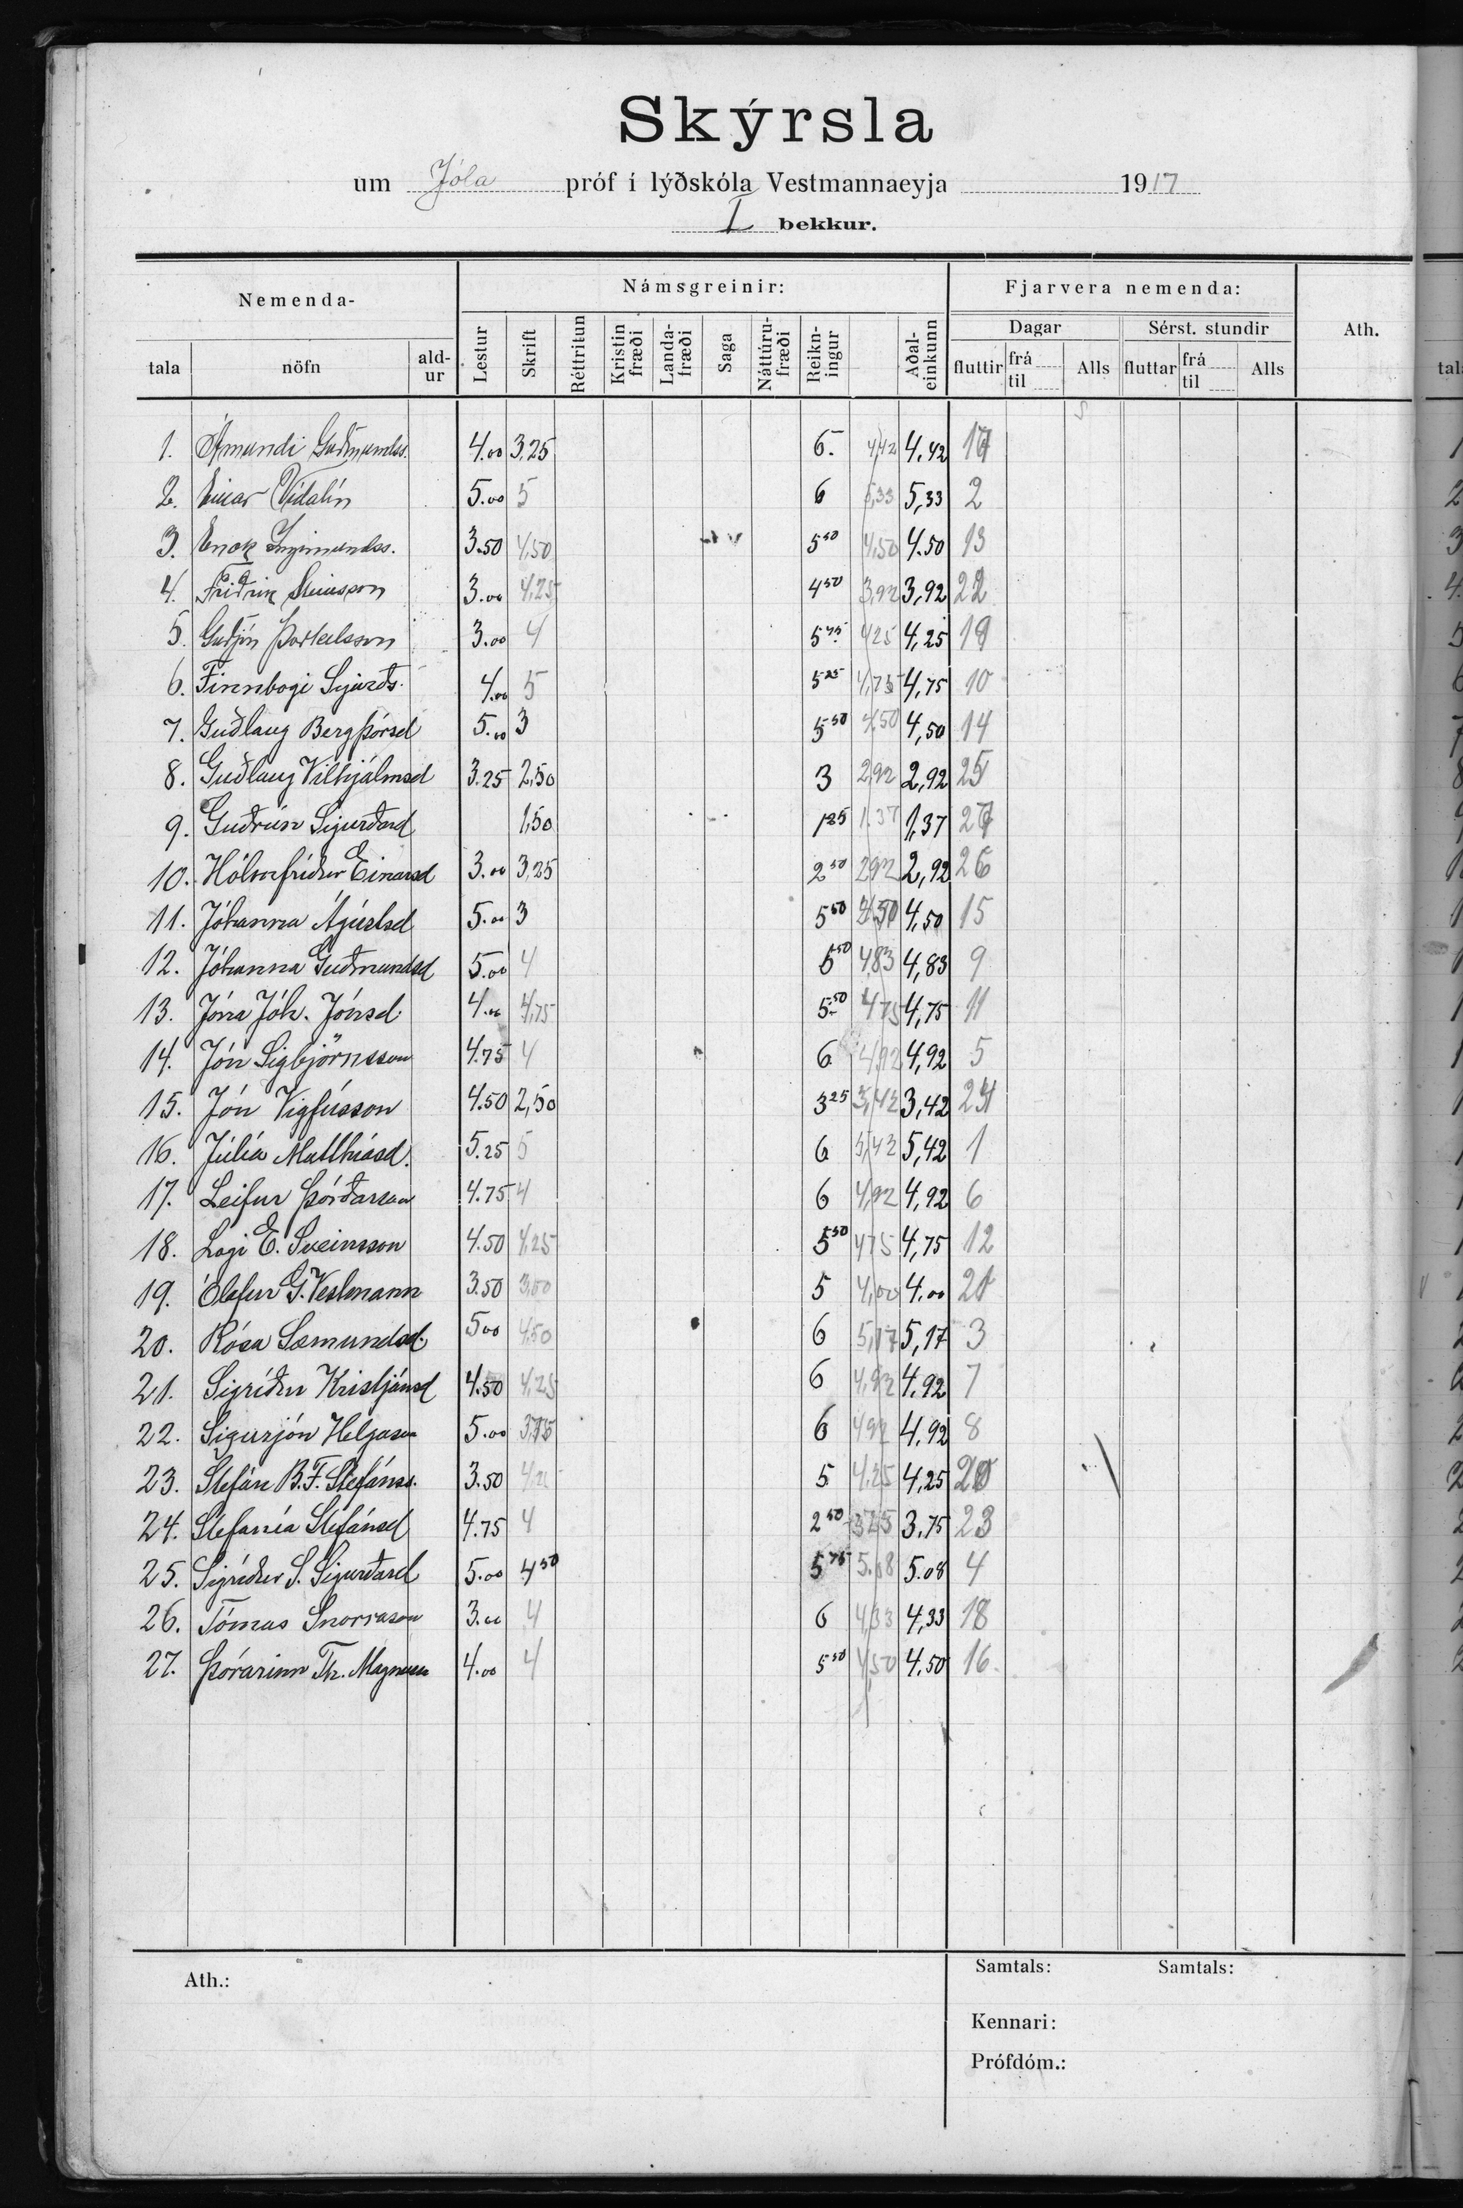 Skýrsla
um Jóla próf í lýðskóla Vestmannaeyja 1917
I bekkur.
Nemenda- Námsgreinir: Fjarvera nemenda: Ath.
Dagar Sérst. stundir
tala nöfn ald-ur Lestur Skrift Réttritun Kristin fræði Landa-fræði Saga Náttúru-fræði Reikn-ingur Aðal-einkunn fluttir frá til Alls fluttar frá til Alls
1. Ámundi Guðmundss. 4.00 3,25 6. 4,42 4,42 17
2. Einar Vídalín 5.00 5 6 5,33 5,33 2
3. Enok Ingimundss. 3.50 4,50 5 50 4,50 4.50 13
4. Friðrik 3.00 4,25 4 50 3,92 3,92 22
5. Guðjón Þorkelsson 3.00 4 5 75 4 25 4,25 19
6. Finnbogi Sigurðs. 4.00 5 5 25 4,75 4,75 10
7. Guðlaug Bergþórsd 5.00 3 5 50 4,50 4,50 14
8. Guðlaug Vilhjálmsd 3.25 2,50 3 2,92 2,92 25
9. Guðrún Sigurðard 1,50 1 25 1.37 1,37 27
10. Hólmfríður Einarsd 3.00 3,25 2 50 2 92 2,92 26
11. Jóhanna Ágústsd 5.00 3 5 50 4,50 4,50 15
12. Jóhanna Guðmundsd 5.00 4 5 50 4,83 4,83 9
13. Jóna Jóh. Jónsd. 4.00 4,75 5 50 4 75 4,75 11
14. Jón Sigbjörnsson 4.75 4 6 4,92 4,92 5
15. Jón Vigfússon 4.50 2,50 3 25 3,42 3,42 24
16. Júlía Matthíasd. 5.25 5 6 5,42 5,42 1
17. Leifur Þórðarson 4.75 4 6 4,92 4,92 6
18. Logi E. Sveinsson 4.50 4,25 5 50 4 75 4,75 12
19. Ólafur G. Vestmann 3.50 3,00 5 4,00 4.00 21
20. Rósa Sæmundsd. 5 00 4,50 6 5,17 5,17 3
21. Sigríður Kristjánsd 4.50 4,25 6 4,92 4.92 7
22. Sigurjón Helgason 5.00 3,75 6 4 92 4,92 8
23. Stefán B.F. Stefánss. 3.50 4,25 5 4,25 4,25 20
24. Stefanía Stefánsd 4.75 4 2 50 3,75 3,75 23
25. Sigríður S. Sigurðard 5.00 4 50 5 75 5.08 5.08 4
26. Tómas Snorrason 3.00 4 6 4,33 4,33 18
27. Þórarinn Th. Magnuss 4.00 4 5 50 4,50 4,50 16.
Ath.: Samtals: Samtals:
Kennari:
Prófdóm.: